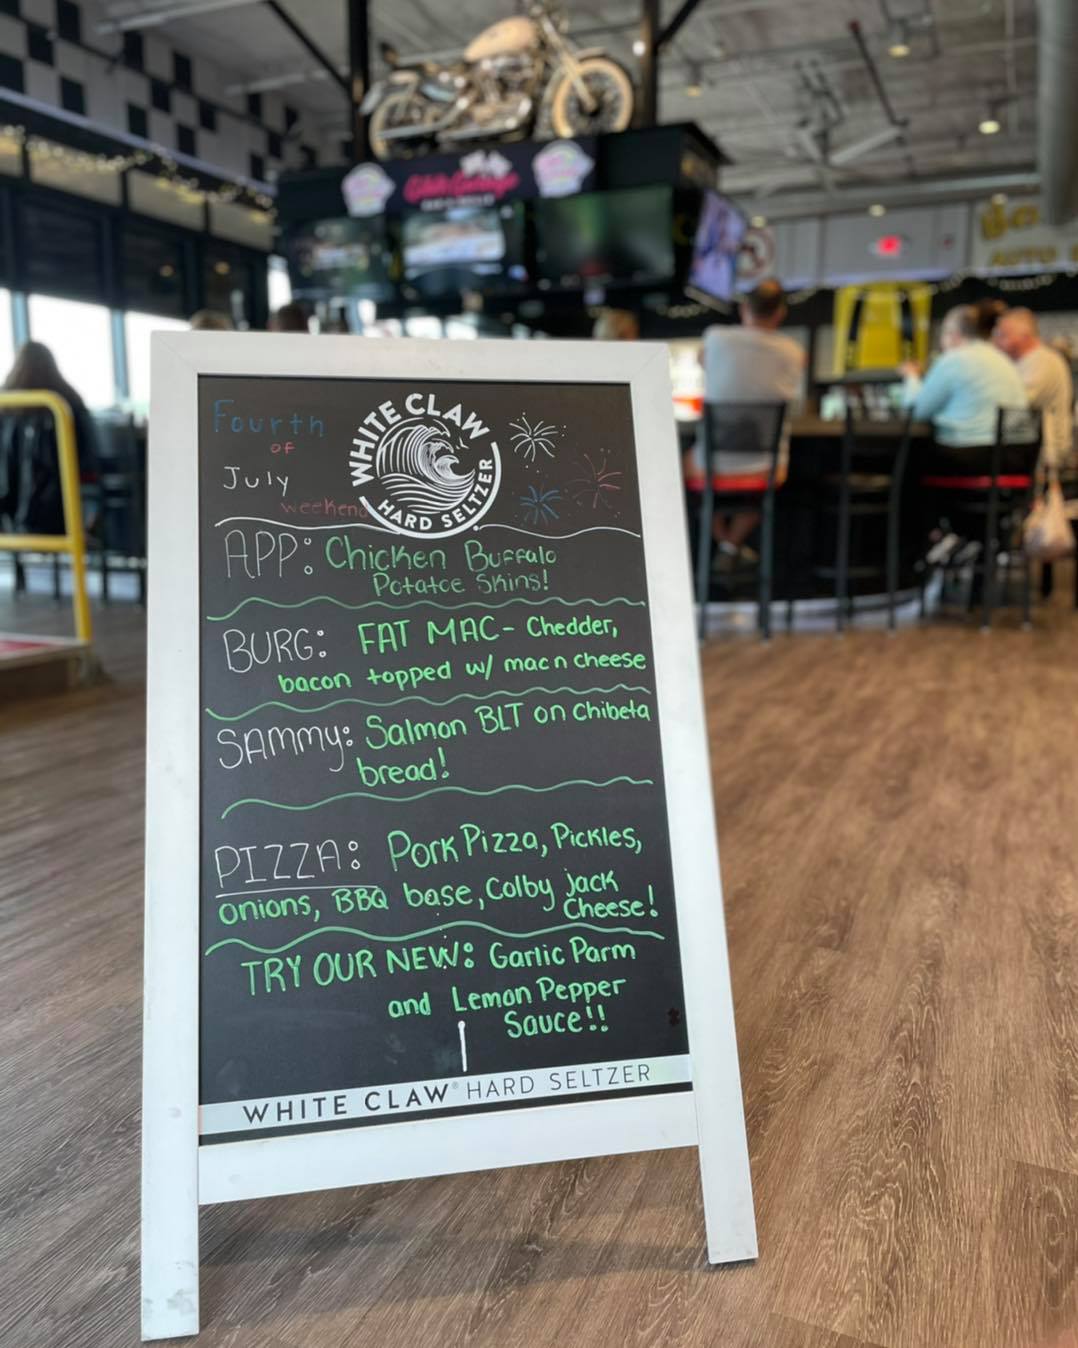 Fourth
OF
July
weekend
WHITE CLAW
HARD SELTZER
APP: Chicken Buffalo
Potatoe Skins!
BURG: FAT MAC - Chedder,
bacon topped w/ mac n cheese
SAMMY: Salmon BLT on Chibeta
bread!
PIZZA: Pork Pizza, Pickles,
onions, BBQ base, Colby jack
Cheese!
TRY OUR NEW: Garlic Parm
and Lemon Pepper
Sauce!!
WHITE CLAW® HARD SELTZER
AUTO